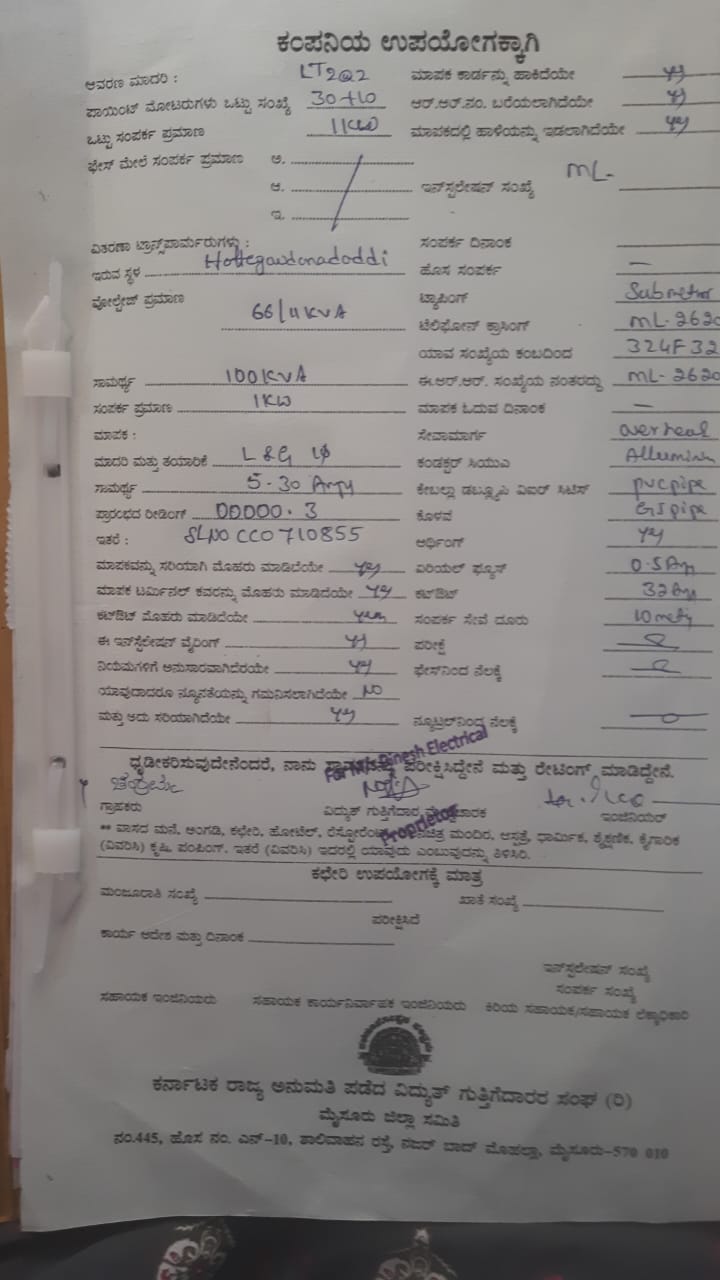 ಕಂಪನಿಯ ಉಪಯೋಗಕ್ಕಾಗಿ
ಆವರಣ ಮಾದರಿ : LT2@2 ಮಾಪಕ ಕಾರ್ಡನ್ನು ಹಾಕಿದೆಯೇ
ಪಾಯಿಂಟ್ ಮೋಟರುಗಳು ಒಟ್ಟು ಸಂಖ್ಯೆ 30+10 ಆರ್.ಆರ್.ನಂ. ಬರೆಯಲಾಗಿದೆಯೇ
ಒಟ್ಟು ಸಂಪರ್ಕ ಪ್ರಮಾಣ 1KW ಮಾಪಕದಲ್ಲಿ ಹಾಳೆಯನ್ನು ಇಡಲಾಗಿದೆಯೇ
ಫೇಸ್ ಮೇಲೆ ಸಂಪರ್ಕ ಪ್ರಮಾಣ ಅ.
ಆ. ಇನ್‌ಸ್ಟಲೇಷನ್ ಸಂಖ್ಯೆ ML-
ಇ.
ವಿತರಣಾ ಟ್ರಾನ್ಸ್‌ಪಾರ್ಮರುಗಳು : ಸಂಪರ್ಕ ದಿನಾಂಕ
ಇರುವ ಸ್ಥಳ Hottegowdanadoddi ಹೊಸ ಸಂಪರ್ಕ —
ವೋಲ್ಟೇಜ್ ಪ್ರಮಾಣ 66/11KVA ಟ್ಯಾಪಿಂಗ್ Submeter
ಟೆಲಿಫೋನ್ ಕ್ರಾಸಿಂಗ್ ML-2620
ಯಾವ ಸಂಖ್ಯೆಯ ಕಂಬದಿಂದ 324F32
ಸಾಮರ್ಥ್ಯ 100KVA ಈ.ಆರ್.ಆರ್. ಸಂಖ್ಯೆಯ ನಂತರದ್ದು ML-2620
ಸಂಪರ್ಕ ಪ್ರಮಾಣ 1KW ಮಾಪಕ ಓದುವ ದಿನಾಂಕ —
ಮಾಪಕ : ಸೇವಾಮಾರ್ಗ overhead
ಮಾದರಿ ಮತ್ತು ತಯಾರಿಕೆ L&G 1ϕ ಕಂಡಕ್ಟರ್ ಸಿಯುಎ
ಸಾಮರ್ಥ್ಯ 5-30 Amp ಕೇಬಲ್ಲಾ ಡಬ್ಲ್ಯೂಪಿ ವಿಐರ್ ಸಿಟಿಸ್ pvcpipe
ಪ್ರಾರಂಭದ ರೀಡಿಂಗ್ 00000.3 ಕೊಳವೆ GS pipe
ಇತರೆ : SLNO CC0710855 ಆರ್ಥಿಂಗ್
ಮಾಪಕವನ್ನು ಸರಿಯಾಗಿ ಮೊಹರು ಮಾಡಿದೆಯೇ ಏರಿಯಲ್ ಫ್ಯೂಸ್ 0.5A
ಮಾಪಕ ಟರ್ಮಿನಲ್ ಕವರನ್ನು ಮೊಹರು ಮಾಡಿದೆಯೇ ಕಟ್‌ಔಟ್ 32A
ಕಟ್‌ಔಟ್ ಮೊಹರು ಮಾಡಿದೆಯೇ ಸಂಪರ್ಕ ಸೇವೆ ದೂರು
ಈ ಇನ್‌ಸ್ಟೆಲೇಷನ್ ವೈರಿಂಗ್ ಪರೀಕ್ಷೆ
ನಿಯಮಗಳಿಗೆ ಅನುಸಾರವಾಗಿದೆರಯೇ ಫೇಸ್‌ನಿಂದ ನೆಲಕ್ಕೆ
ಯಾವುದಾದರೂ ನ್ಯೂನತೆಯನ್ನು ಗಮನಿಸಲಾಗಿದೆಯೇ NO
ಮತ್ತು ಅದು ಸರಿಯಾಗಿದೆಯೇ ನ್ಯೂಟ್ರಲ್‌ನಿಂದ ನೆಲಕ್ಕೆ
ಧೃಡೀಕರಿಸುವುದೇನೆಂದರೆ, ನಾನು ಪರೀಕ್ಷಿಸಿದ್ದೇನೆ ಮತ್ತು ರೇಟಿಂಗ್ ಮಾಡಿದ್ದೇನೆ.
For M/s Dinesh Electrical
Proprietor
ಗ್ರಾಹಕರು ವಿದ್ಯುತ್ ಗುತ್ತಿಗೆದಾರ ಇಂಜಿನಿಯರ್
** ವಾಸದ ಮನೆ, ಅಂಗಡಿ, ಕಛೇರಿ, ಹೋಟೆಲ್, ಮಂದಿರ, ಆಸ್ಪತ್ರೆ, ಧಾರ್ಮಿಕ, ಶೈಕ್ಷಣಿಕ, ಕೈಗಾರಿಕ
(ವಿವರಿಸಿ) ಕೃಷಿ, ಪಂಪಿಂಗ್, ಇತರೆ (ವಿವರಿಸಿ) ಇದರಲ್ಲಿ ಯಾವುದು ಎಂಬುವುದನ್ನು ತಿಳಿಸಿರಿ.
ಕಛೇರಿ ಉಪಯೋಗಕ್ಕೆ ಮಾತ್ರ
ಮಂಜೂರಾತಿ ಸಂಖ್ಯೆ ಖಾತೆ ಸಂಖ್ಯೆ
ಪರೀಕ್ಷಿಸಿದೆ
ಕಾರ್ಯ ಆದೇಶ ಮತ್ತು ದಿನಾಂಕ
ಇನ್‌ಸ್ಟಲೇಷನ್ ಸಂಖ್ಯೆ
ಸಂಪರ್ಕ ಸಂಖ್ಯೆ
ಸಹಾಯಕ ಇಂಜಿನಿಯರು ಸಹಾಯಕ ಕಾರ್ಯನಿರ್ವಾಹಕ ಇಂಜಿನಿಯರು ಕಿರಿಯ ಸಹಾಯಕ/ಸಹಾಯಕ ಲೆಕ್ಕಾಧಿಕಾರಿ
ಕರ್ನಾಟಕ ರಾಜ್ಯ ಅನುಮತಿ ಪಡೆದ ವಿದ್ಯುತ್ ಗುತ್ತಿಗೆದಾರರ ಸಂಘ (ರಿ)
ಮೈಸೂರು ಜಿಲ್ಲಾ ಸಮಿತಿ
ನಂ.445, ಹೊಸ ನಂ. ಎನ್-10, ಶಾಲಿವಾಹನ ರಸ್ತೆ, ನಜರ್ ಬಾದ್ ಮೊಹಲ್ಲಾ, ಮೈಸೂರು-570 010